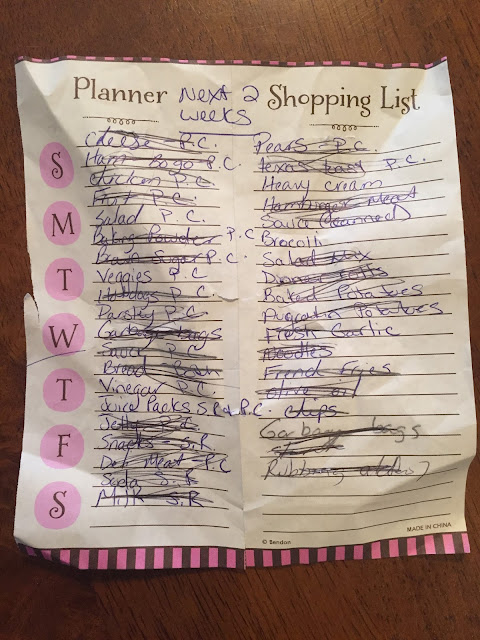 Planner Next 2 Shopping List
weeks
Cheese P.C.
Ham Bogo P.C.
Chicken P.C.
Fruit P.C.
Salad P.C.
Baking Powder P.C
Brown Sugar P.C
Veggies P.C
P.C.
Parsley P.C
Garbage bags
Sauce P.C
Bread
Vinegar P.C.
Juice Packs S.R & P.C.
Jelly
Snacks S.R
Deli Meat P.C
Soda S.R
Milk S.R
S
M
T
W
T
F
S
Pears P.C.
Texas toast P.C.
Heavy cream
Hamburger Meat
Sauce (canned)
Brocolli
Salad Mix
Dinner rolls
Baked Potatoes
Augratin Potatoes
Fresh Garlic
Noodles
French Fries
Olive oil
chips
Garbage bags
Rubbing
© Bendon
MADE IN CHINA